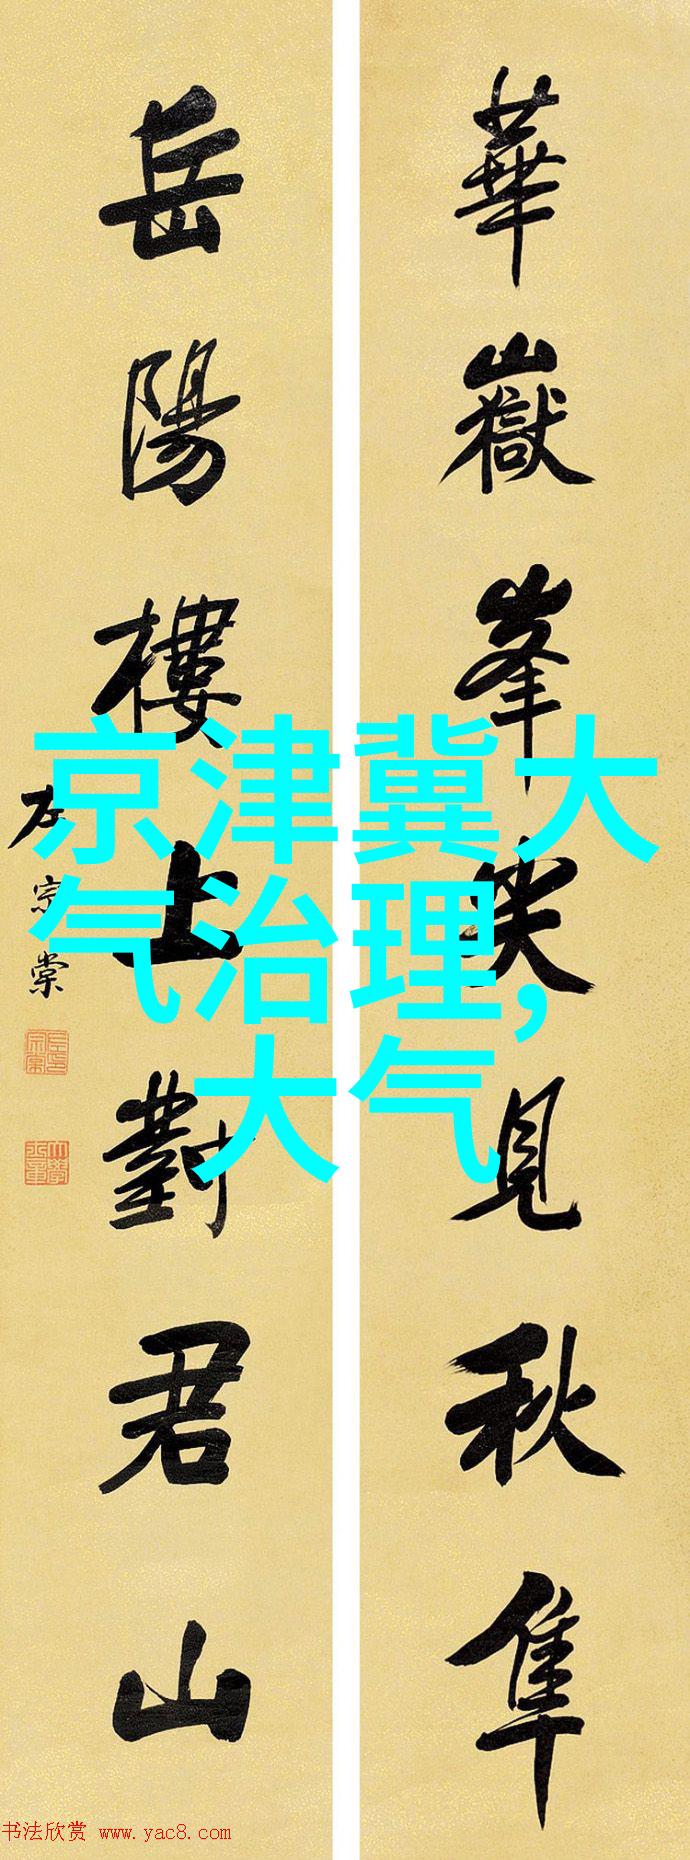 華嶽峯尖見秋隼
岳陽樓上對君山
左宗棠
京津冀大
气治理,
大气
书法欣赏 www.yac8.com